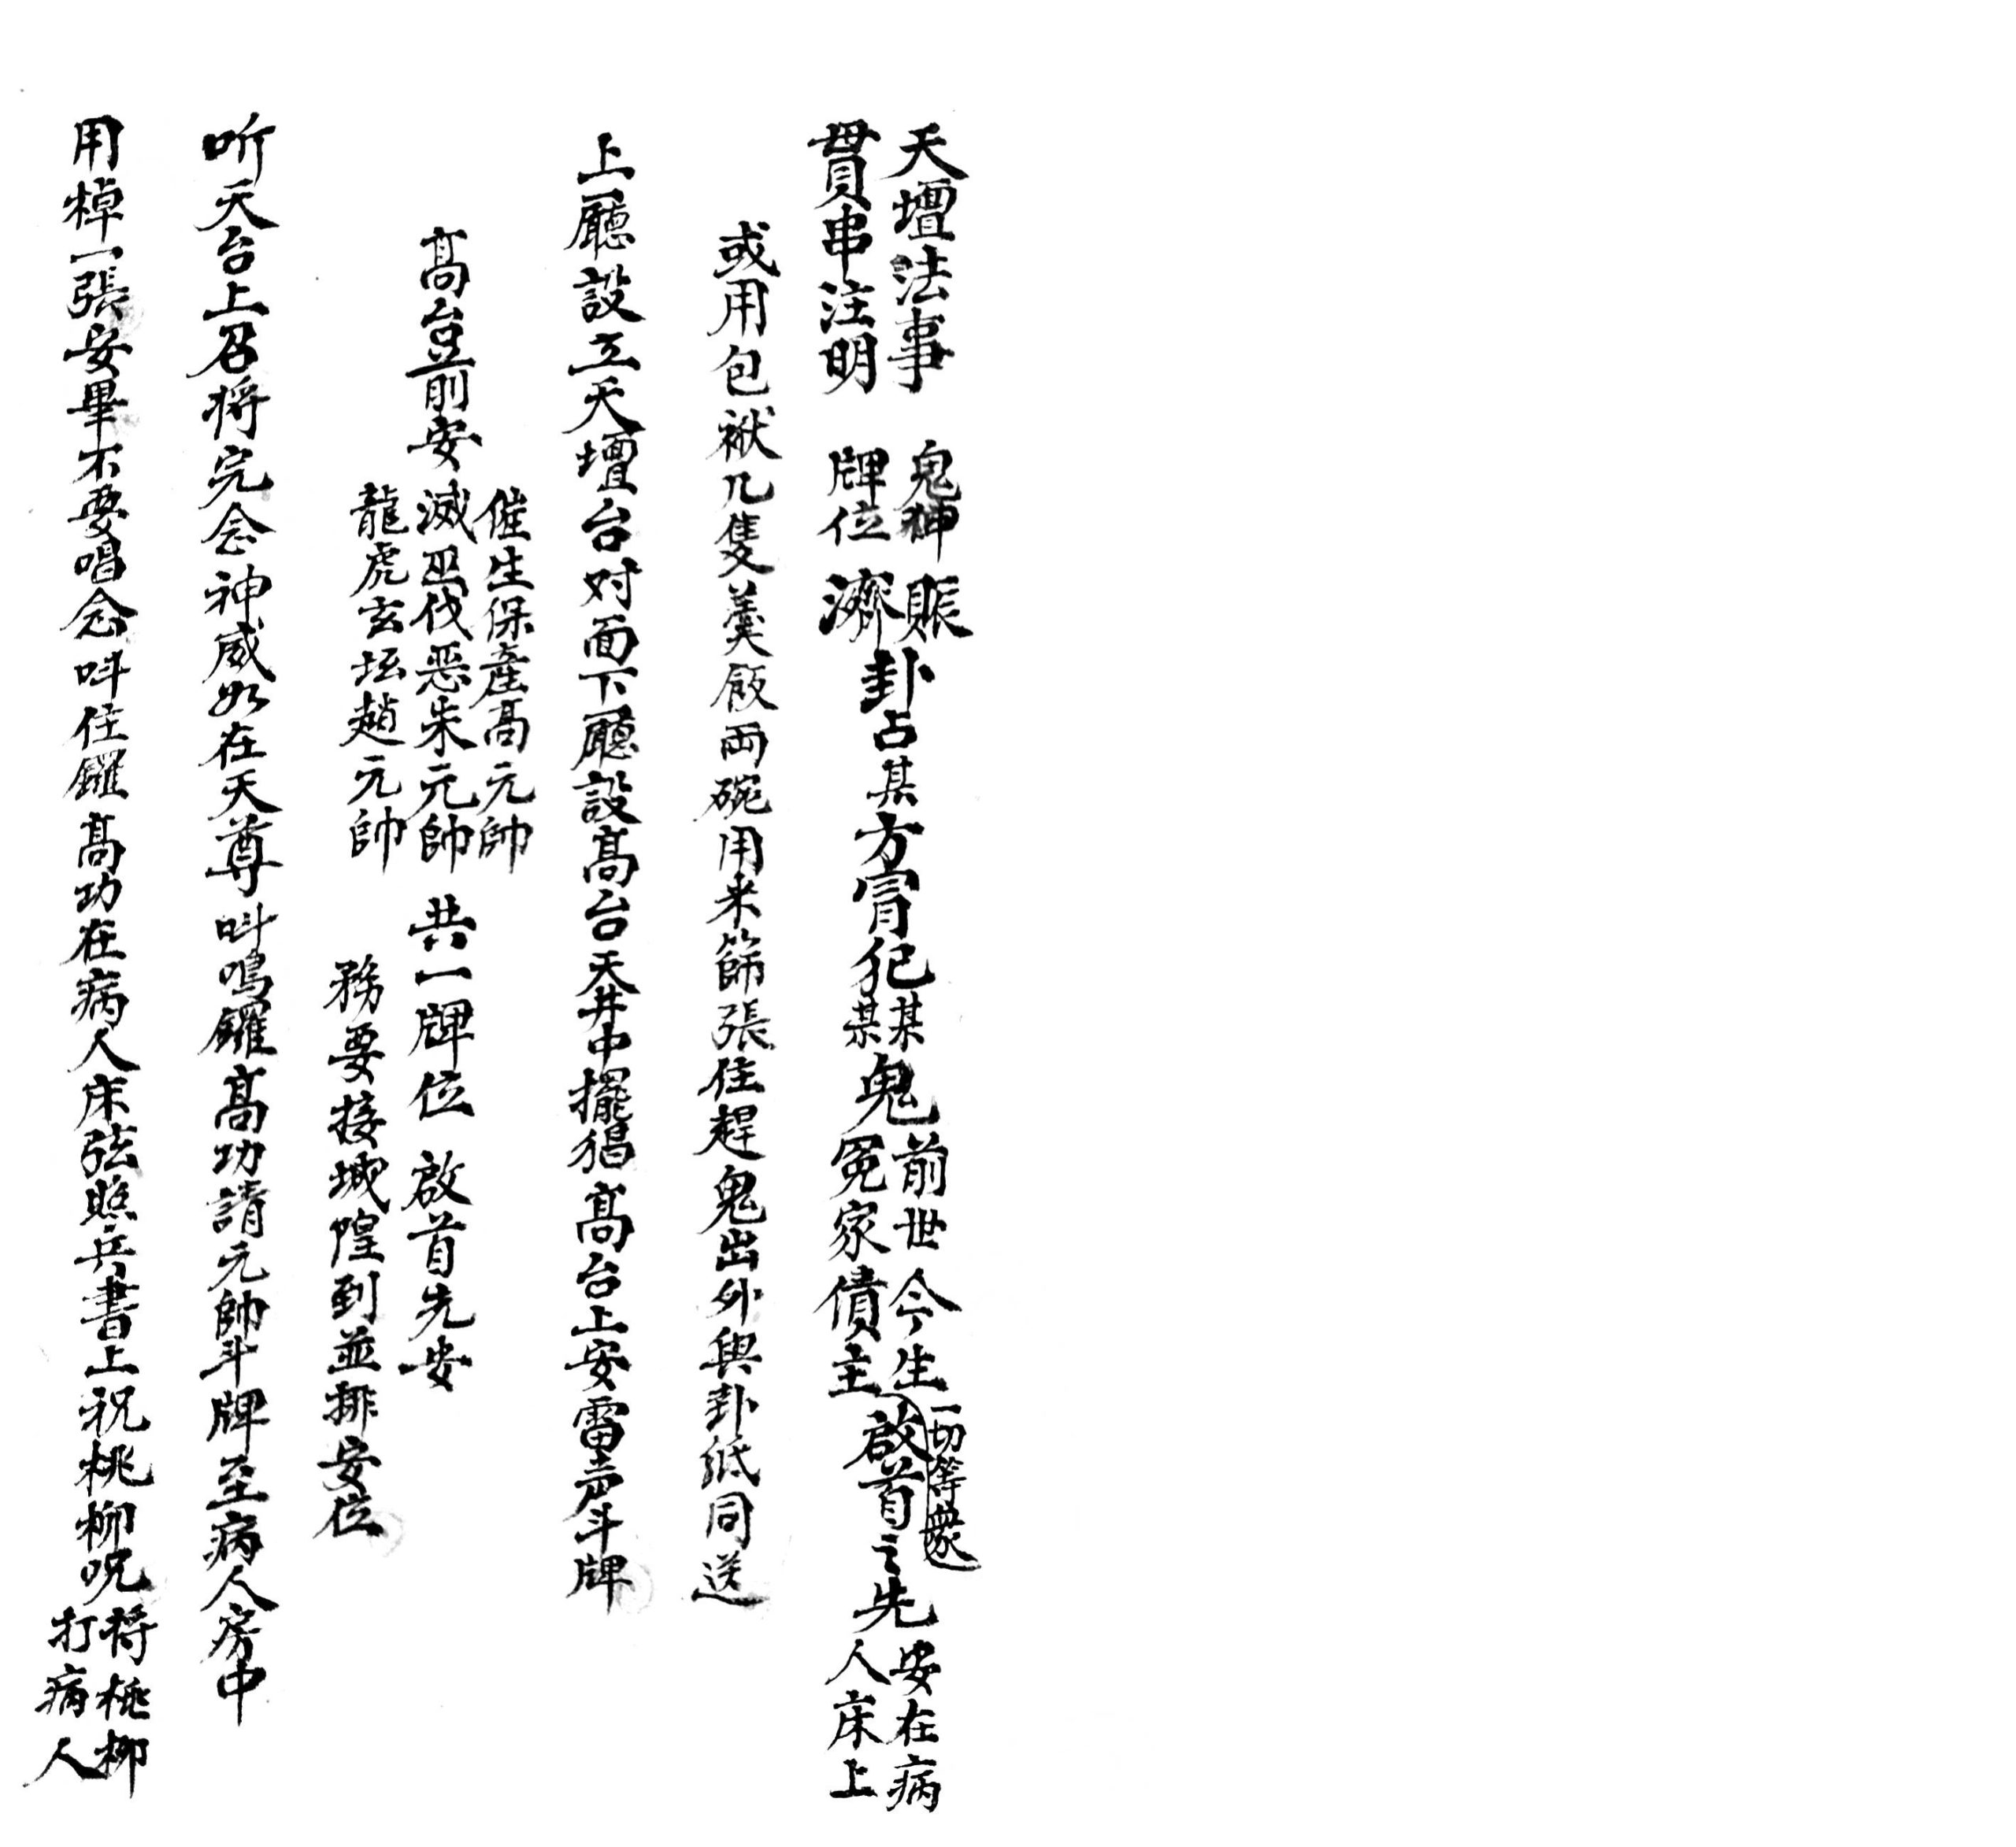 天壇法事 鬼神 賑
貫串注明 牌位 濟
卦占某方冒犯
某
某
鬼
前世今生
冤家債主
一切等衆
啟首之先
安在病
人床上
或用包袱几隻羹飯両碗用米篩張住趕鬼出外與卦纸同送
上廳設立天壇台对面下廳設髙台天井中擺猖髙台上安雷声斗牌
髙臺前安
催生保產髙元帥
滅巫伐恶朱元帥
龍虎玄坛趙元帥
共一牌位 啟首先安
務要接城隍到並排安位
听天台上召将完念神威如在天尊叫鳴鑼髙功請元帥斗牌至病人房中
用棹一張安畢不要唱念叫住鑼髙功在病人床弦照兵書上祝桃柳呪
将桃柳
打病人